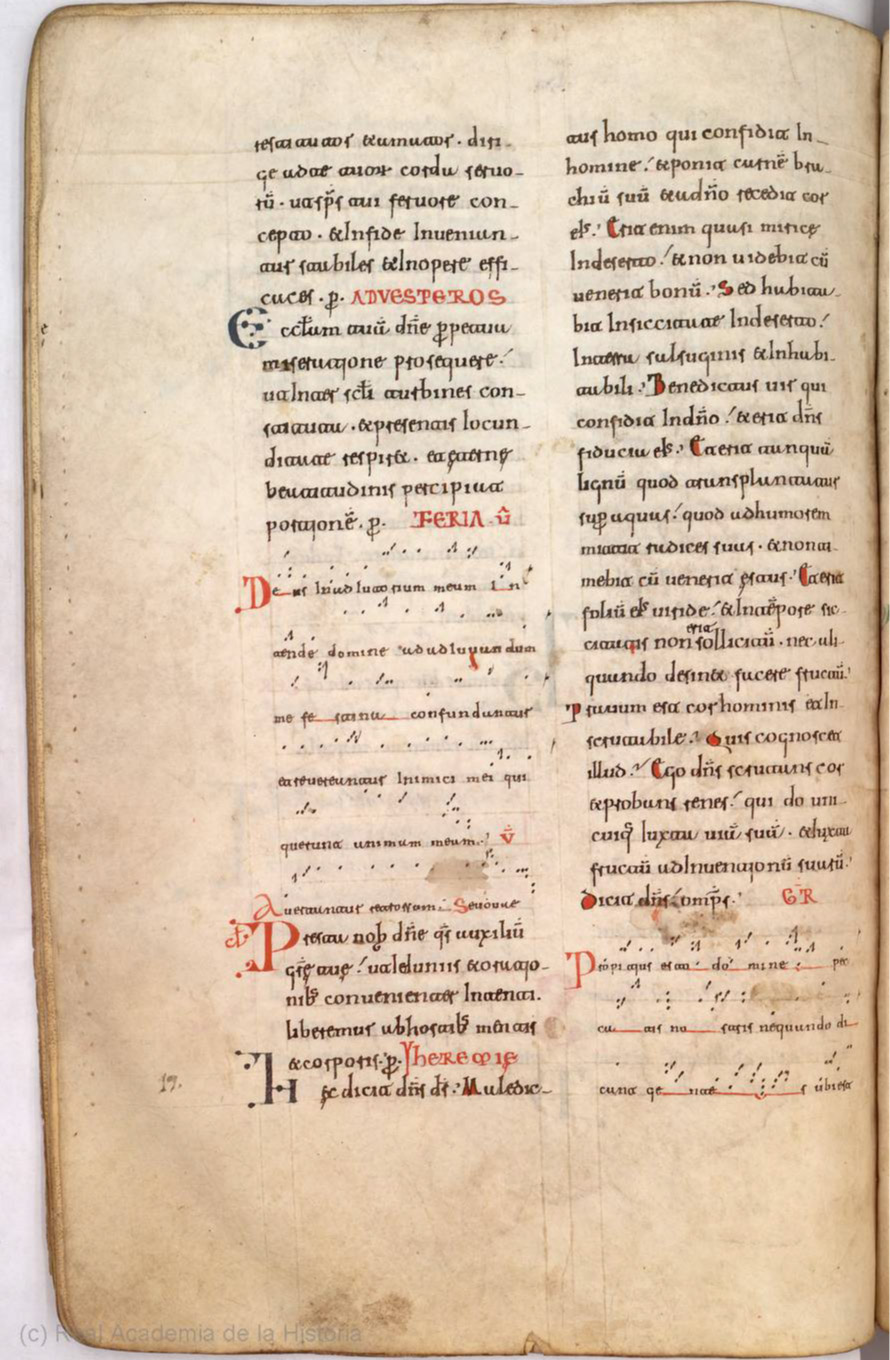 ge uitae tuor cordu seruo-
rū. ut sp̄s tui feruore con-
cepto. & In fide Inuenian-
tur stabiles & In opere effi-
caces. p̱. AD VESPEROS
Ecclam tuā dn̄e ppetua
miseratione prosequere.
ut Inter scl̄i turbines con-
stituta. & presentis iocun-
ditate respir&. et ęternę
beatitudinis percipiat
portionē. p̱. FERIA .U
Deus In adiutorium meum in
tende domine ad adiuuandum
me fe stina confundantur
et reuereantur Inimici mei qui
querunt animam meam. V̄
Auertantur retrorsum. Seuouae
Presta nob dn̄e qs̄ auxiliū
grē tuę. ut Ieiuniis & oratio-
nib; conuenienter Intenti.
liberemur ab hostib; mentis
& corporis. p̱. Yheremię
Hęc dicit dn̄s ds̄. Maledic-
tus homo qui confidit In
homine. & ponit carnē bra-
chiū suū & a dn̄o recedit cor
ei;. Erit enim quasi miricę
In deserto. & non uidebit cū
uenerit bonū. Sed habita-
bit In siccitate In deserto.
In terra salsuginis & Inhabi-
tabili. Benedictus uir qui
confidit In dn̄o. & erit dn̄s
fiducia ei;. Et erit tanquā
lignū quod transplantatur
sup aquas. quod ad humorem
mittit radices suas. & non ti-
mebit cū uenerit ęstus. Et erit
foliū ei; uiride. & In tēpore sic-
citatis non erit sollicitū. nec ali-
quando desin& facere fructū.
Prauum est cor hominis et In-
scrutabile. Quis cognoscet
illud. Ego dn̄s scrutans cor
& probans renes. qui do uni-
cuiq; iuxta uiā suā. & iuxta
fructū adInuentionū suarū.
Dicit dn̄s omp̄s. GR
Propitius esto do mine pec
ca tis no stris nequando di
cant ge nte s ubi est
17.
(c) Real Academia de la Historia